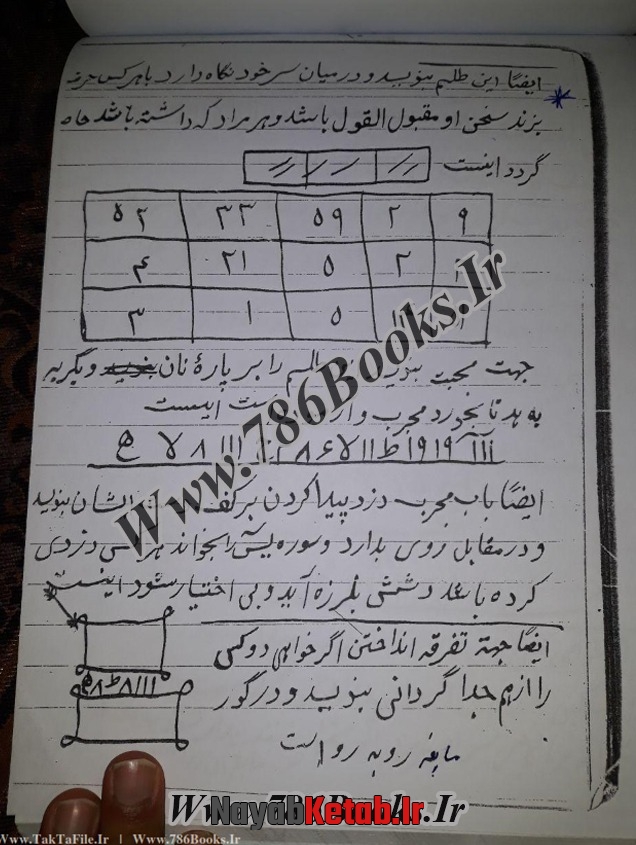 ایضاً این طلسم بنویسد و در میان سر خود نگاه دارد با هر کس حرف
بزند سخن او مقبول القول باشد و هر مراد که داشته باشد حاصل
گردد اینست
۹ ۲ ۵۹ ۳۳ ۵۲
۲ ۵ ۲۱ ۴
۵ ۱ ۳
جهت محبت بنویسد را بر پارهٔ نان و بگربه
بدهد تا بخورد مجرب و اینست
ایضاً باب مجرب دزد پیدا کردن بر کف بنویسد
و در مقابل روی بدارد و سوره یس را بخواند هر کسی دزدی
کرده باشد دستش بلرزه آید و بی اختیار شود اینست
ایضاً جهة تفرقه انداختن اگر خواهی دو کس
را از هم جدا گردانی بنویسد و در گور
روبه رو است
Www.786Books.Ir
Www.786Books.Ir
NayabKetab.Ir
Www.TakTaFile.Ir | Www.786Books.Ir